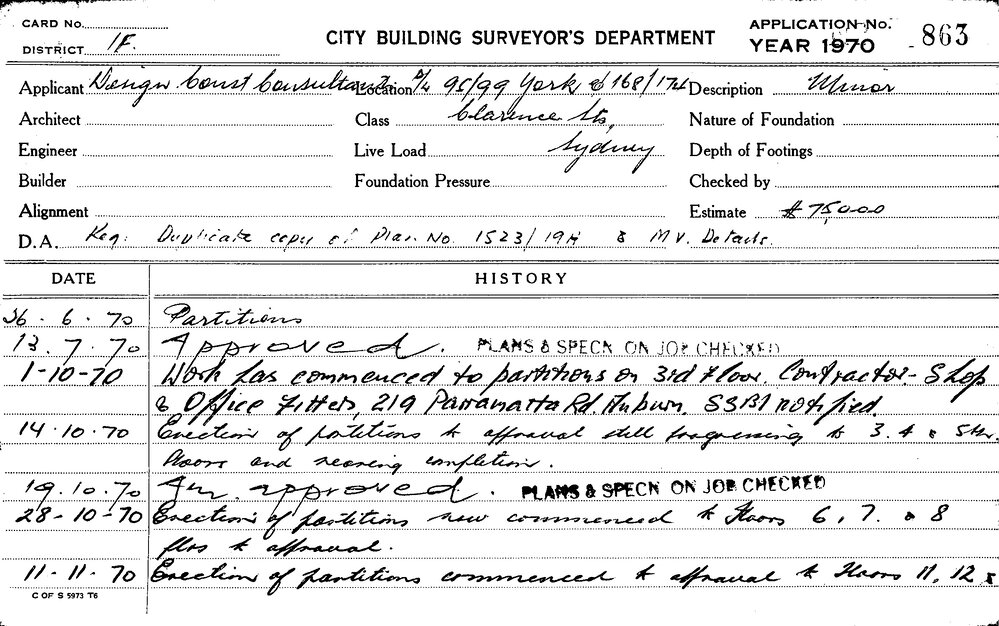 CARD No.
DISTRICT 1F.
CITY BUILDING SURVEYOR'S DEPARTMENT
APPLICATION No. 863
YEAR 1970
Applicant Design Const Consultants Location 95/99 York & 168/174 Description Minor
Architect Class Clarence Sts, Nature of Foundation
Engineer Live Load Sydney Depth of Footings
Builder Foundation Pressure Checked by
Alignment Estimate $75,000
D.A. Req: Duplicate copy of Plan No. 1523/19H & M.V. Details.
DATE HISTORY
26.6.70 Partitions
13.7.70 Approved. PLANS & SPECN ON JOB CHECKED
1-10-70 Work has commenced to partitions on 3rd Floor. Contractor - Shop
& Office Fitters, 219 Parramatta Rd. Auburn. SSBI notified.
14.10.70 Erection of partitions to approval still progressing to 3. 4 & 5th.
floors and nearing completion.
19.10.70 Am. approved. PLANS & SPECN ON JOB CHECKED
28-10-70 Erection of partitions now commenced to floors 6, 7. & 8
flrs to approval.
11-11-70 Erection of partitions commenced to approval to floors 11, 12 &
C OF S 5973 T6